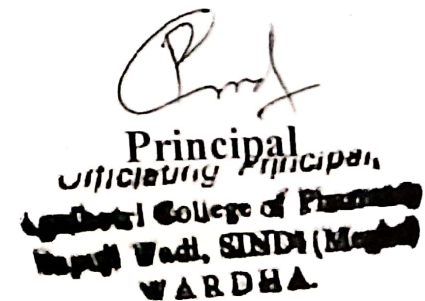 Principal
Officiating Principal,
Agnihotri College of Pharmacy
Bapuji Wadi, SINDI (Meghe)
WARDHA.